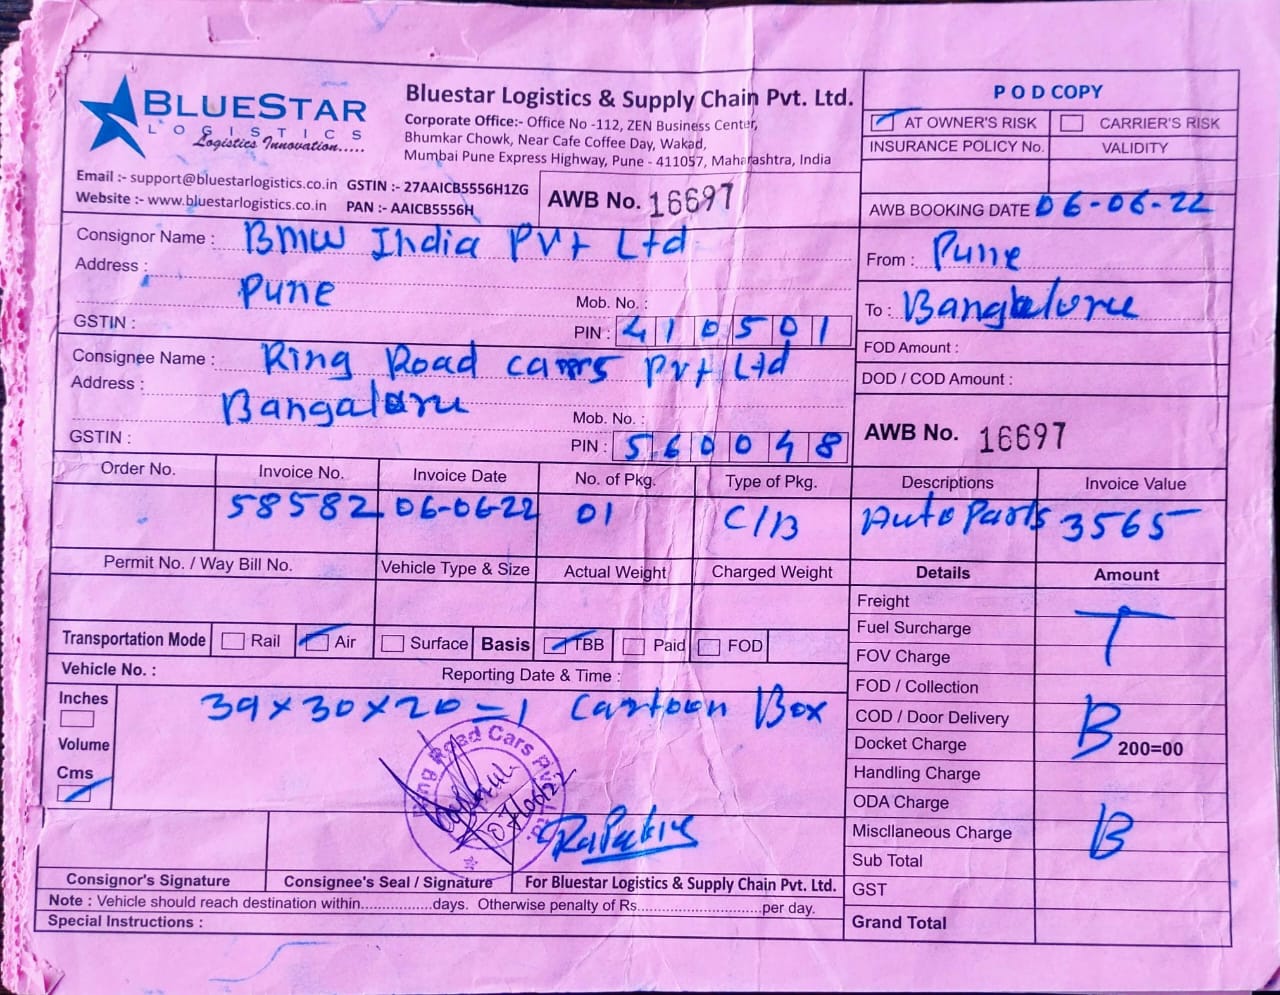 BLUESTAR
LOGISTICS
Logistics Innovation.....
Bluestar Logistics & Supply Chain Pvt. Ltd.
Corporate Office:- Office No -112, ZEN Business Center,
Bhumkar Chowk, Near Cafe Coffee Day, Wakad,
Mumbai Pune Express Highway, Pune - 411057, Maharashtra, India
Email :- support@bluestarlogistics.co.in GSTIN :- 27AAICB5556H1ZG
Website :- www.bluestarlogistics.co.in PAN :- AAICB5556H
AWB No. 16697
POD COPY
AT OWNER'S RISK CARRIER'S RISK
INSURANCE POLICY No. VALIDITY
AWB BOOKING DATE 06-06-22
Consignor Name : BMW India Pvt Ltd
Address : Pune
Mob. No. :
GSTIN : PIN : 410501
From : Pune
To : Bangaloru
FOD Amount :
DOD / COD Amount :
Consignee Name : Ring Road carrs Pvt Ltd
Address : Bangaloru
Mob. No. :
GSTIN : PIN : 560048
AWB No. 16697
Order No. Invoice No. Invoice Date No. of Pkg. Type of Pkg. Descriptions Invoice Value
58582 06-06-22 01 C/B Auto Parts 3565
Permit No. / Way Bill No. Vehicle Type & Size Actual Weight Charged Weight Details Amount
Transportation Mode Rail Air Surface Basis TBB Paid FOD
Vehicle No. : Reporting Date & Time :
Inches
Volume
Cms
39x30x20=1 Cartoon Box
Ring Road Cars Pvt. Ltd.
Freight
Fuel Surcharge T
FOV Charge
FOD / Collection
COD / Door Delivery B
Docket Charge 200=00
Handling Charge
ODA Charge
Miscllaneous Charge B
Sub Total
GST
Grand Total
Consignor's Signature Consignee's Seal / Signature For Bluestar Logistics & Supply Chain Pvt. Ltd.
Note : Vehicle should reach destination within................days. Otherwise penalty of Rs............................per day.
Special Instructions :